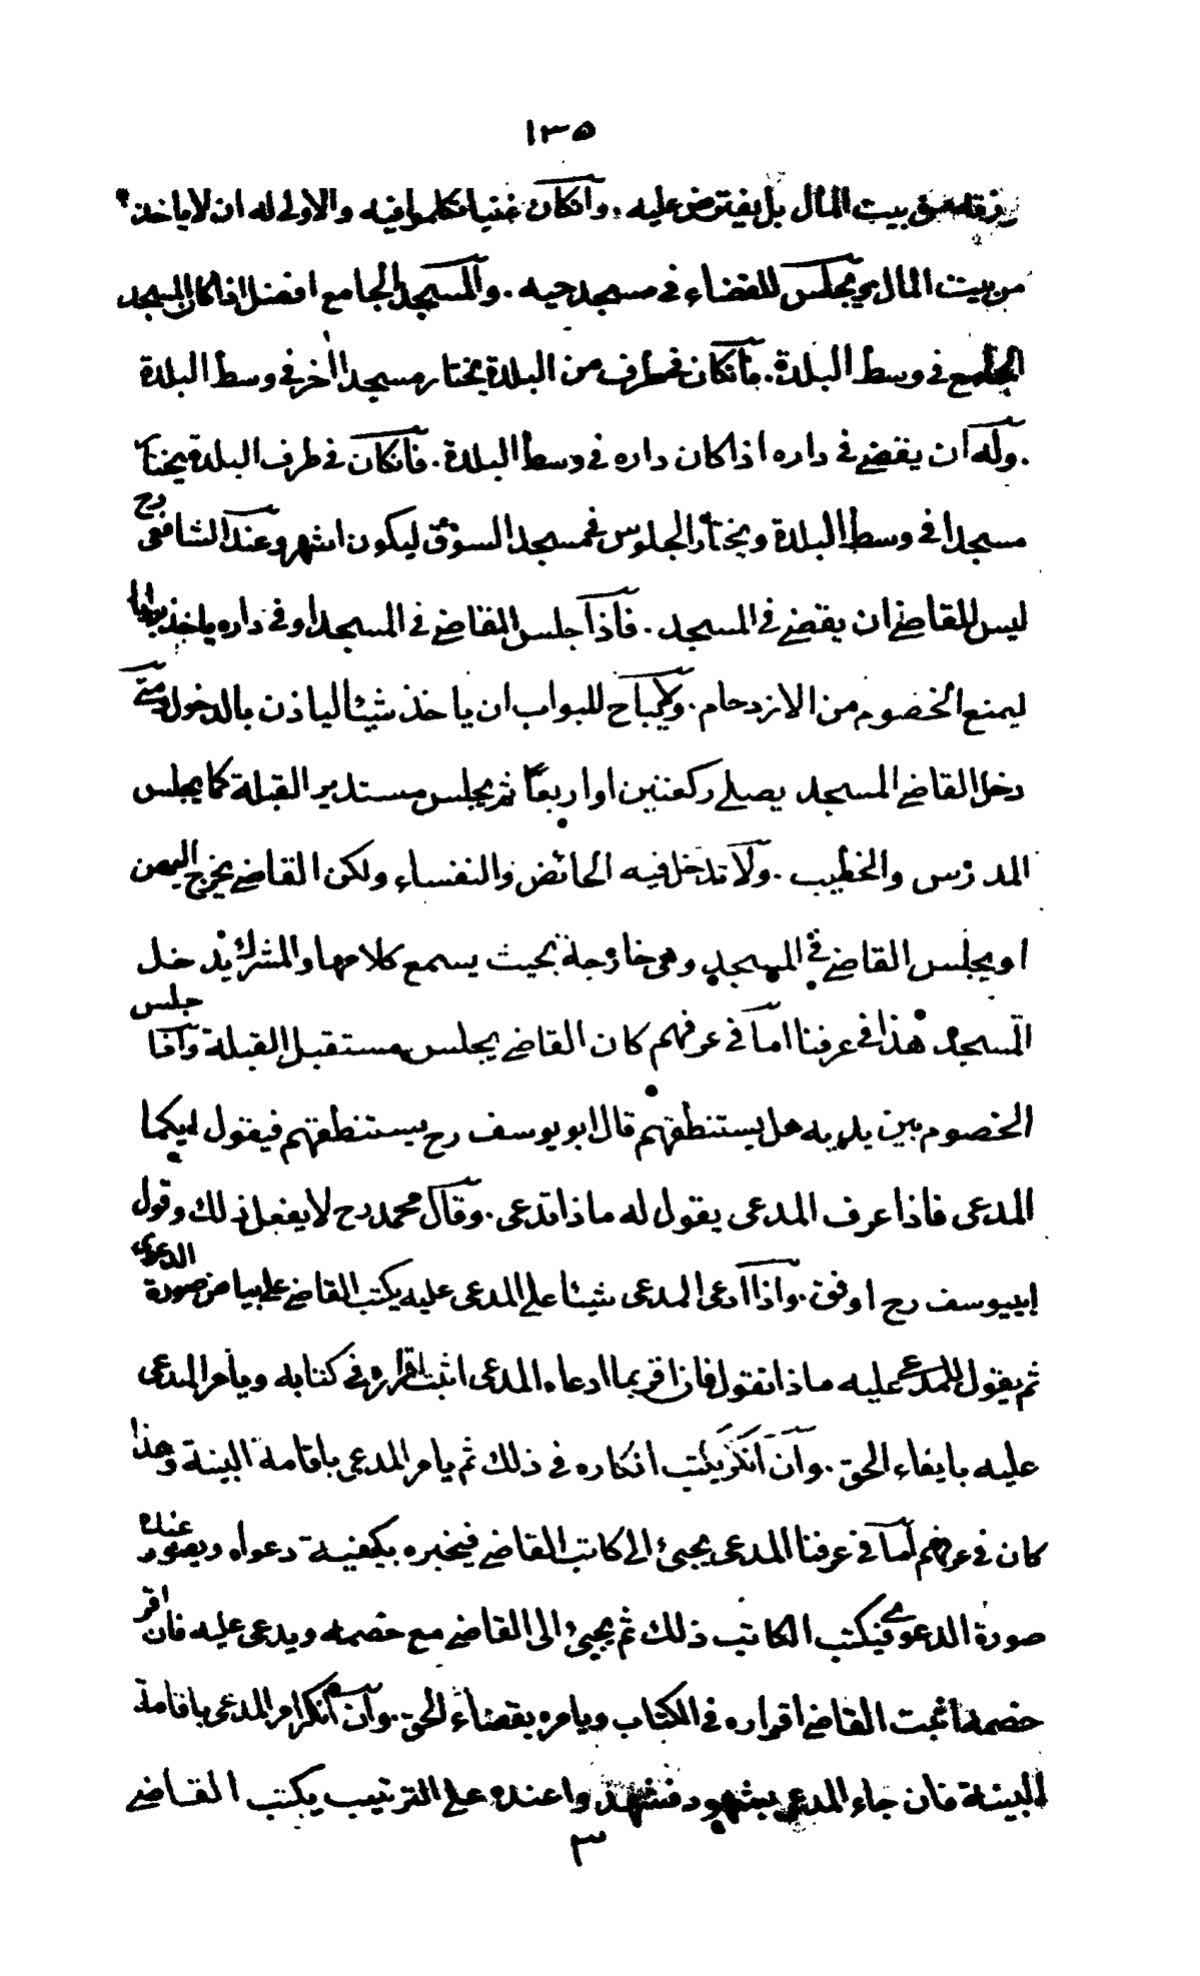 ١٣٥
رزقه من بيت المال بل يفترض عليه . وانكان غنيا تكلموا فيه والاولى له ان لا ياخذ
من بيت المال ويجلس للقضاء فى مسجد حيه . والمسجد الجامع افضل اذا كان المسجد
الجامع فى وسط البلدة . فانكان فى طرف من البلدة يختار مسجدا اخر فى وسط البلدة
. وله ان يقضى فى داره اذا كان داره فى وسط البلدة . فانكان فى طرف البلدة يختار
مسجدا فى وسط البلدة ويختار الجلوس فى مسجد السوق ليكون اشهر وعند الشافعى رح
ليس للقاضى ان يقضى فى المسجد . فاذا جلس القاضى فى المسجد او فى داره ياخذ بوابا
ليمنع الخصوم من الازدحام . ولا يباح للبواب ان ياخذ شيئا لياذن بالدخول ومتى
دخل القاضى المسجد يصلى ركعتين او اربعا ثم يجلس مستدبر القبلة كما يجلس
المدرس والخطيب . ولا تدخل فيه الحائض والنفساء ولكن القاضى يخرج اليهن
او يجلس القاضى فى المسجد وهى خارجة بحيث يسمع كلامها والمشرك يدخل
المسجد هذا فى عرفنا اما فى عرفهم كان القاضى يجلس مستقبل القبلة واذا جلس
الخصوم بين يديه هل يستنطقهم قال ابو يوسف رح يستنطقهم فيقول ايكما
المدعى فاذا عرف المدعى يقول له ماذا تدعى . وقال محمد رح لا يفعل ذلك وقول
ابييوسف رح اوفق . واذا ادعى المدعى شيئا على المدعى عليه يكتب القاضى على بياض صورة الدعوى
ثم يقول للمدعى عليه ماذا تقول فان اقر بما ادعاه المدعى اثبت اقراره فى كتابه ويامر المدعى
عليه بايفاء الحق . وان انكر يكتب انكاره فى ذلك ثم يامر المدعى باقامة البينة وهذا
كان فى عرفهم اما فى عرفنا المدعى يجيئ الى كاتب القاضى فيخبره بكيفية دعواه ويصور عنده
صورة الدعوى فيكتب الكاتب ذلك ثم يجيئ الى القاضى مع خصمه ويدعى عليه فان اقر
خصمه اثبت القاضى اقراره فى الكتاب ويامره بقضاء الحق . وان انكر امر المدعى باقامة
البينة فان جاء المدعى بشهود فشهدوا عنده على الترتيب يكتب القاضى
٣